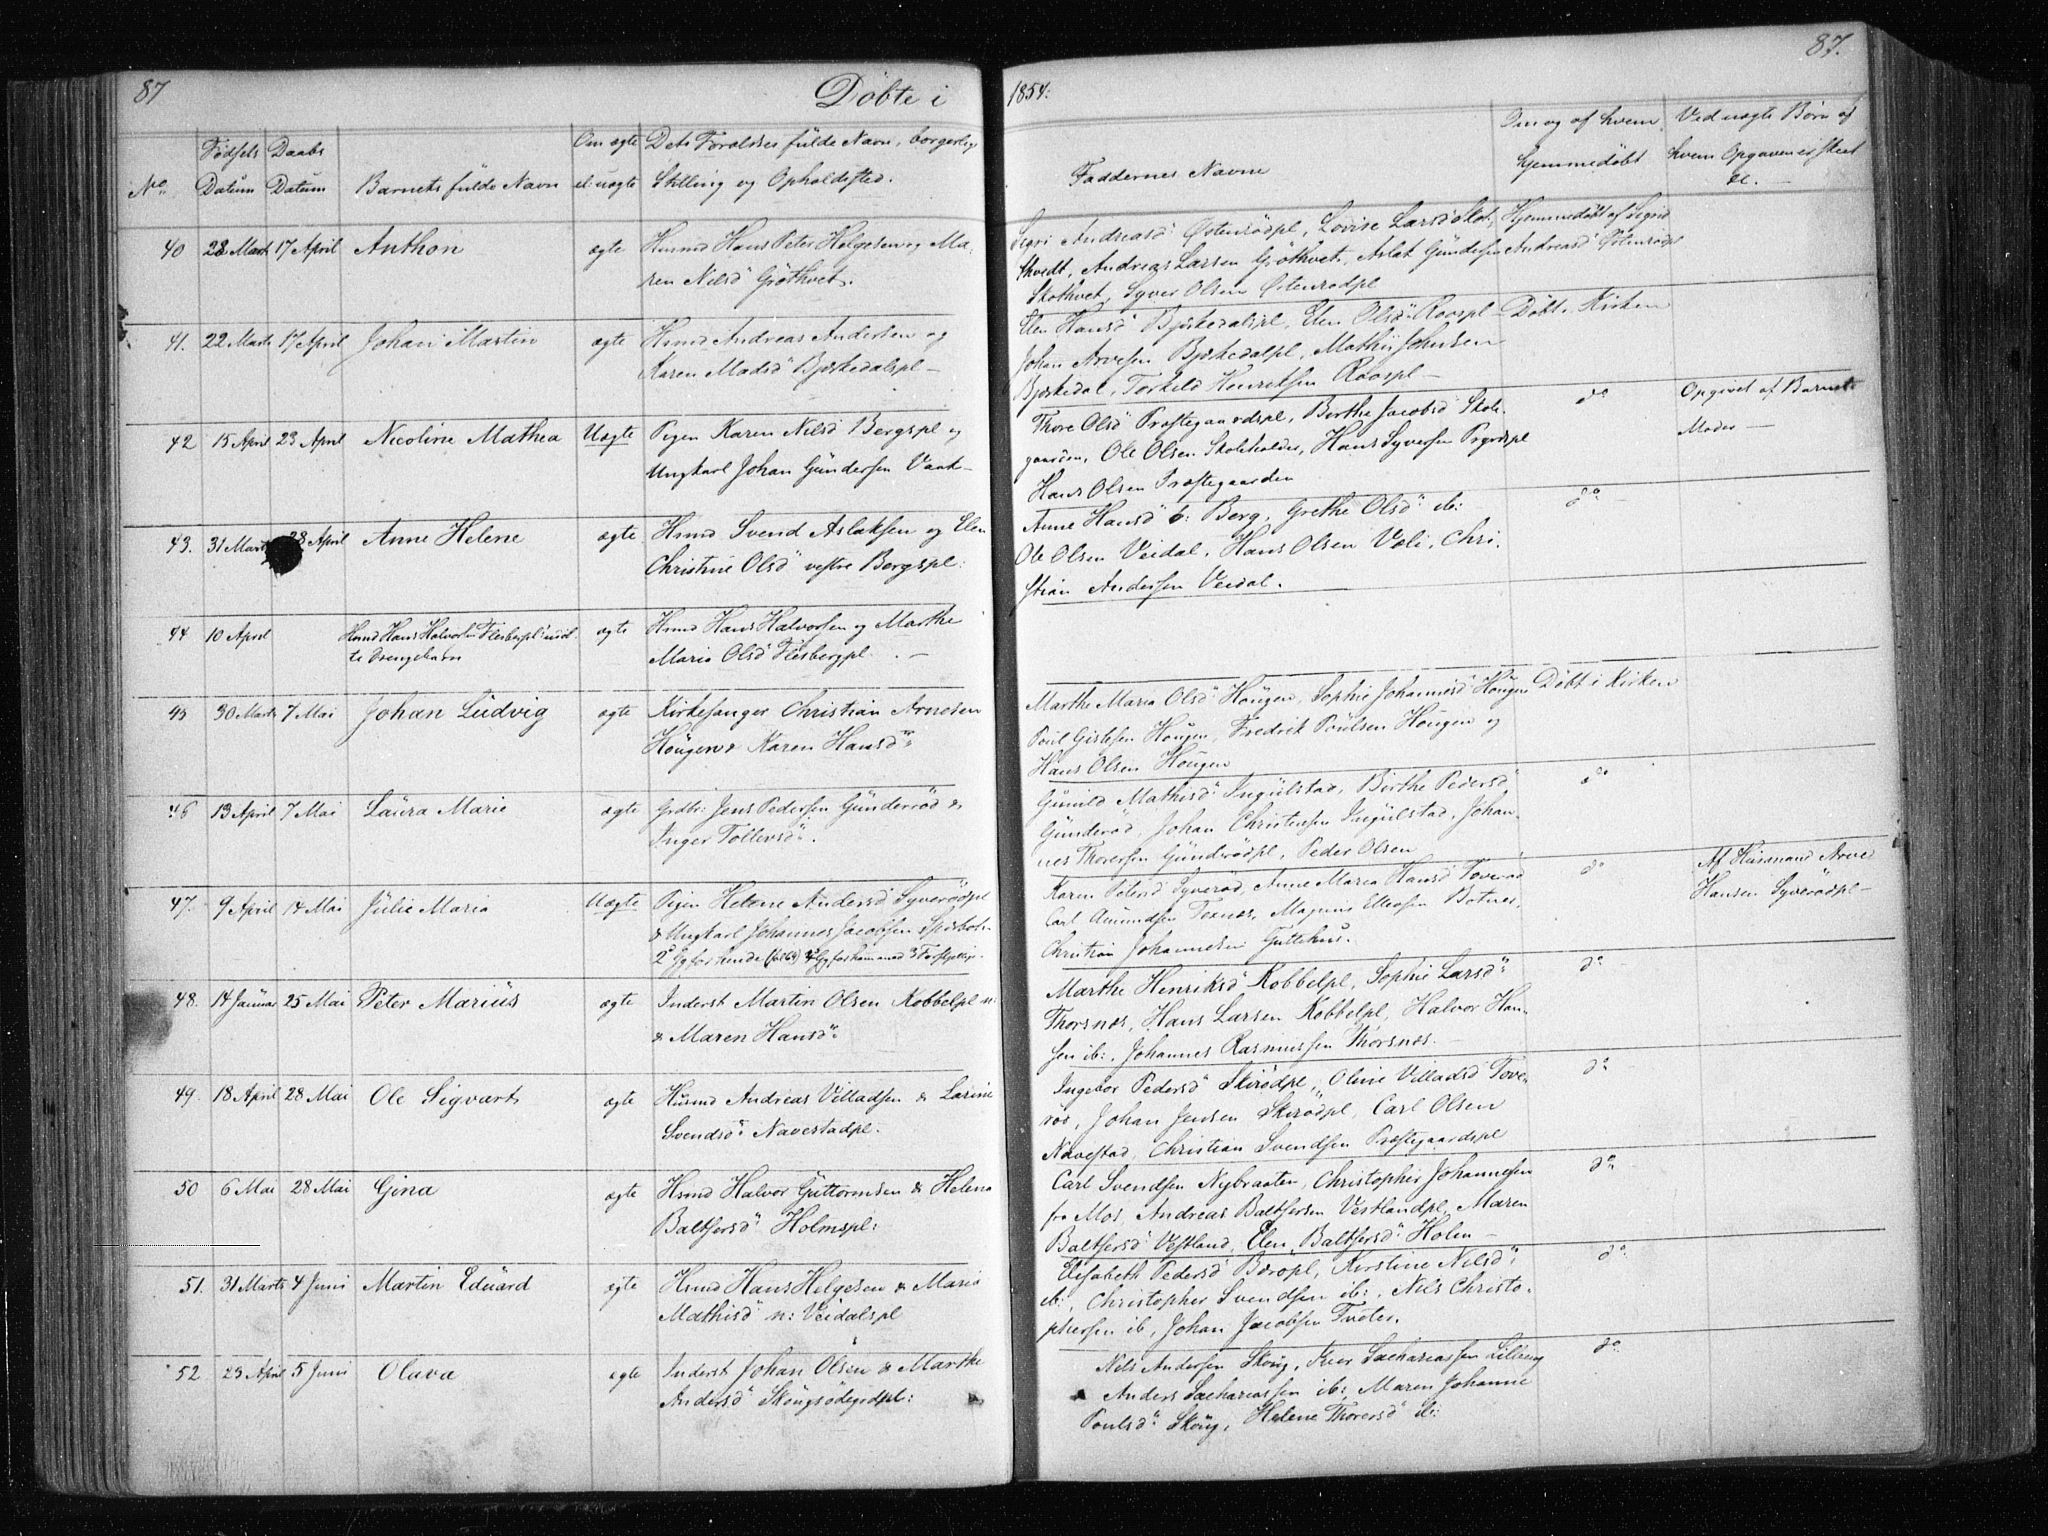 87
Döbte i
1854.
87.
No.
Fødsels Datum
Daabs Datum
Barnets fulde Navn
Om ægte el: uægte
Dets Forældres fulde Navn, borgerlige Stilling og Opholdssted.
Faddernes Navne
Om og af hvem hjemmedöbt
Ved uægte Börn af hvem Opgaven er skeet &c. —
40 28 Marts 17 April Anthon ægte Husmd Hans Peter Helgesen og Ma-
ren Nilsd Gröthvet.
Andreasd Østenrödpl, Lovise Larsd Hjemmedöbt af Sigrid
Andreas Larsen Gröthvet, Aslak Gundersen Andreasd Østenrödpl
Skothvet, Syver Olsen Østenrödpl
41. 22 Marts 17 April Johan Martin ægte Hsmd Andreas Andersen og
Karen Madsd Bjørkedalspl —
Elen Hansd Bjørkedalspl, Elen Olsd Roospl — Döbt i Kirken
Johan Arvesen Bjørkedalspl, Mathis Johnsen
Bjørkedal, Torkild Henriksen Roospl —
42 15 April 23 April Nicoline Mathea Uægte Pigen Karen Nilsd Bergspl og
Ungkarl Johan Gundersen
Thore Olsd Præstegaardspl, Berthe Jacobsd Skole- do Opgivet af Barnets
gaarden, Ole Olsen Skoleholder, Hans Syversen Prgrdspl Moder —
Hans Olsen Præstegaarden
43. 31 Marts 28 April Anne Helene ægte Hsmd Svend Aslaksen og Elen
Christine Olsd vestre Bergspl:
Anne Hansd Berg, Grethe Olsd ib: do
Ole Olsen Veidal, Hans Olsen Væli, Chri-
stian Andersen Veidal.
44 10 April Hsmd Hans Halvorsen Flesbergpl
te Drengebarn ægte Hsmd Hans Halvorsen og Marthe
Maria Olsd Flesbergpl. —
45 30 Marts 7 Mai Johan Ludvig ægte Kirkesanger Christian Arnesen
Hougen & Karen Hansd
Marthe Maria Olsd Hougen, Sophie Johannesd Hougen Döbt i Kirken
Poul Gislesen Hougen, Fredrik Poulsen Hougen og
Hans Olsen Hougen
46 13 April 7 Mai Laura Marie ægte Grdbr: Jens Pedersen Gunderöd &
Inger Tollevsd.
Gunild Mathisd Ingulstad, Birthe Pedersd do
Gunderöd, Johan Christensen Ingulstad, Johan-
nes Thoresen Gunderödpl, Peder Olsen
47. 9 April 14 Mai Julie Maria Uægte Pigen Helene Andersd Syverödpl
& Ungkarl Johannes Jacobsen
2d Lg for hende (fol 64) for ham
Karen Petersd Syveröd, Anne Maria Hansd Toveröd do Af Husmand Arve
Carl Amundsen Texnes, Magnus Ellefsen Botnes, Hansen Syverödpl —
Christian Johannesen Guttehus.
48. 14 Januar 25 Mai Peter Marius ægte Inderst Martin Olsen Kobbelpl n:
& Maren Hansd
Marthe Henriksd Kobbelpl, Sophie Larsd do
Thorsnæs, Hans Larsen Kobbelpl, Halvor Han-
sen ib:, Johannes Rasmussen Thorsnæs.
49. 18 April 28 Mai Ole Sigvart ægte Husmd Andreas Villadsen & Larine
Svendsd Navestadpl.
Ingebor Pedersd Skirödpl, Oline Villadsd Tove- do
röd, Johan Jensen Skirödpl, Carl Olsen
Navestad, Christian Svendsen Præstegaardspl
50 6 Mai 28 Mai Gina ægte Hsmd Halvor Guttormsen & Helena
Baltsersd Holmspl:
Carl Svendsen Nybraaten, Christopher Johannesen do
fra Mos, Andreas Baltsersen Vestlandpl, Maren
Baltsersd Vestland, Elen Baltsersd Holen —
51. 31 Marts 4 Juni Martin Eduard ægte Hsmd Hans Helgesen & Maria
Mathisd n: Veidalspl
Elisabeth Pedersd Beröpl, Kirstine Nilsd do
ib:, Christopher Svendsen ib:, Nils Christo-
phersen ib, Johan Jacobsen Tveter.
52 23 April 5 Juni Olava ægte Inderst Johan Olsen & Marthe
Andersd Skougsödegrdpl:
Nils Andersen Skoug, Iver Sachariassen Lilleng do
Anders Sachariassen ib:, Maren Johanne
Poulsd Skoug, Helene Thoresd ib: